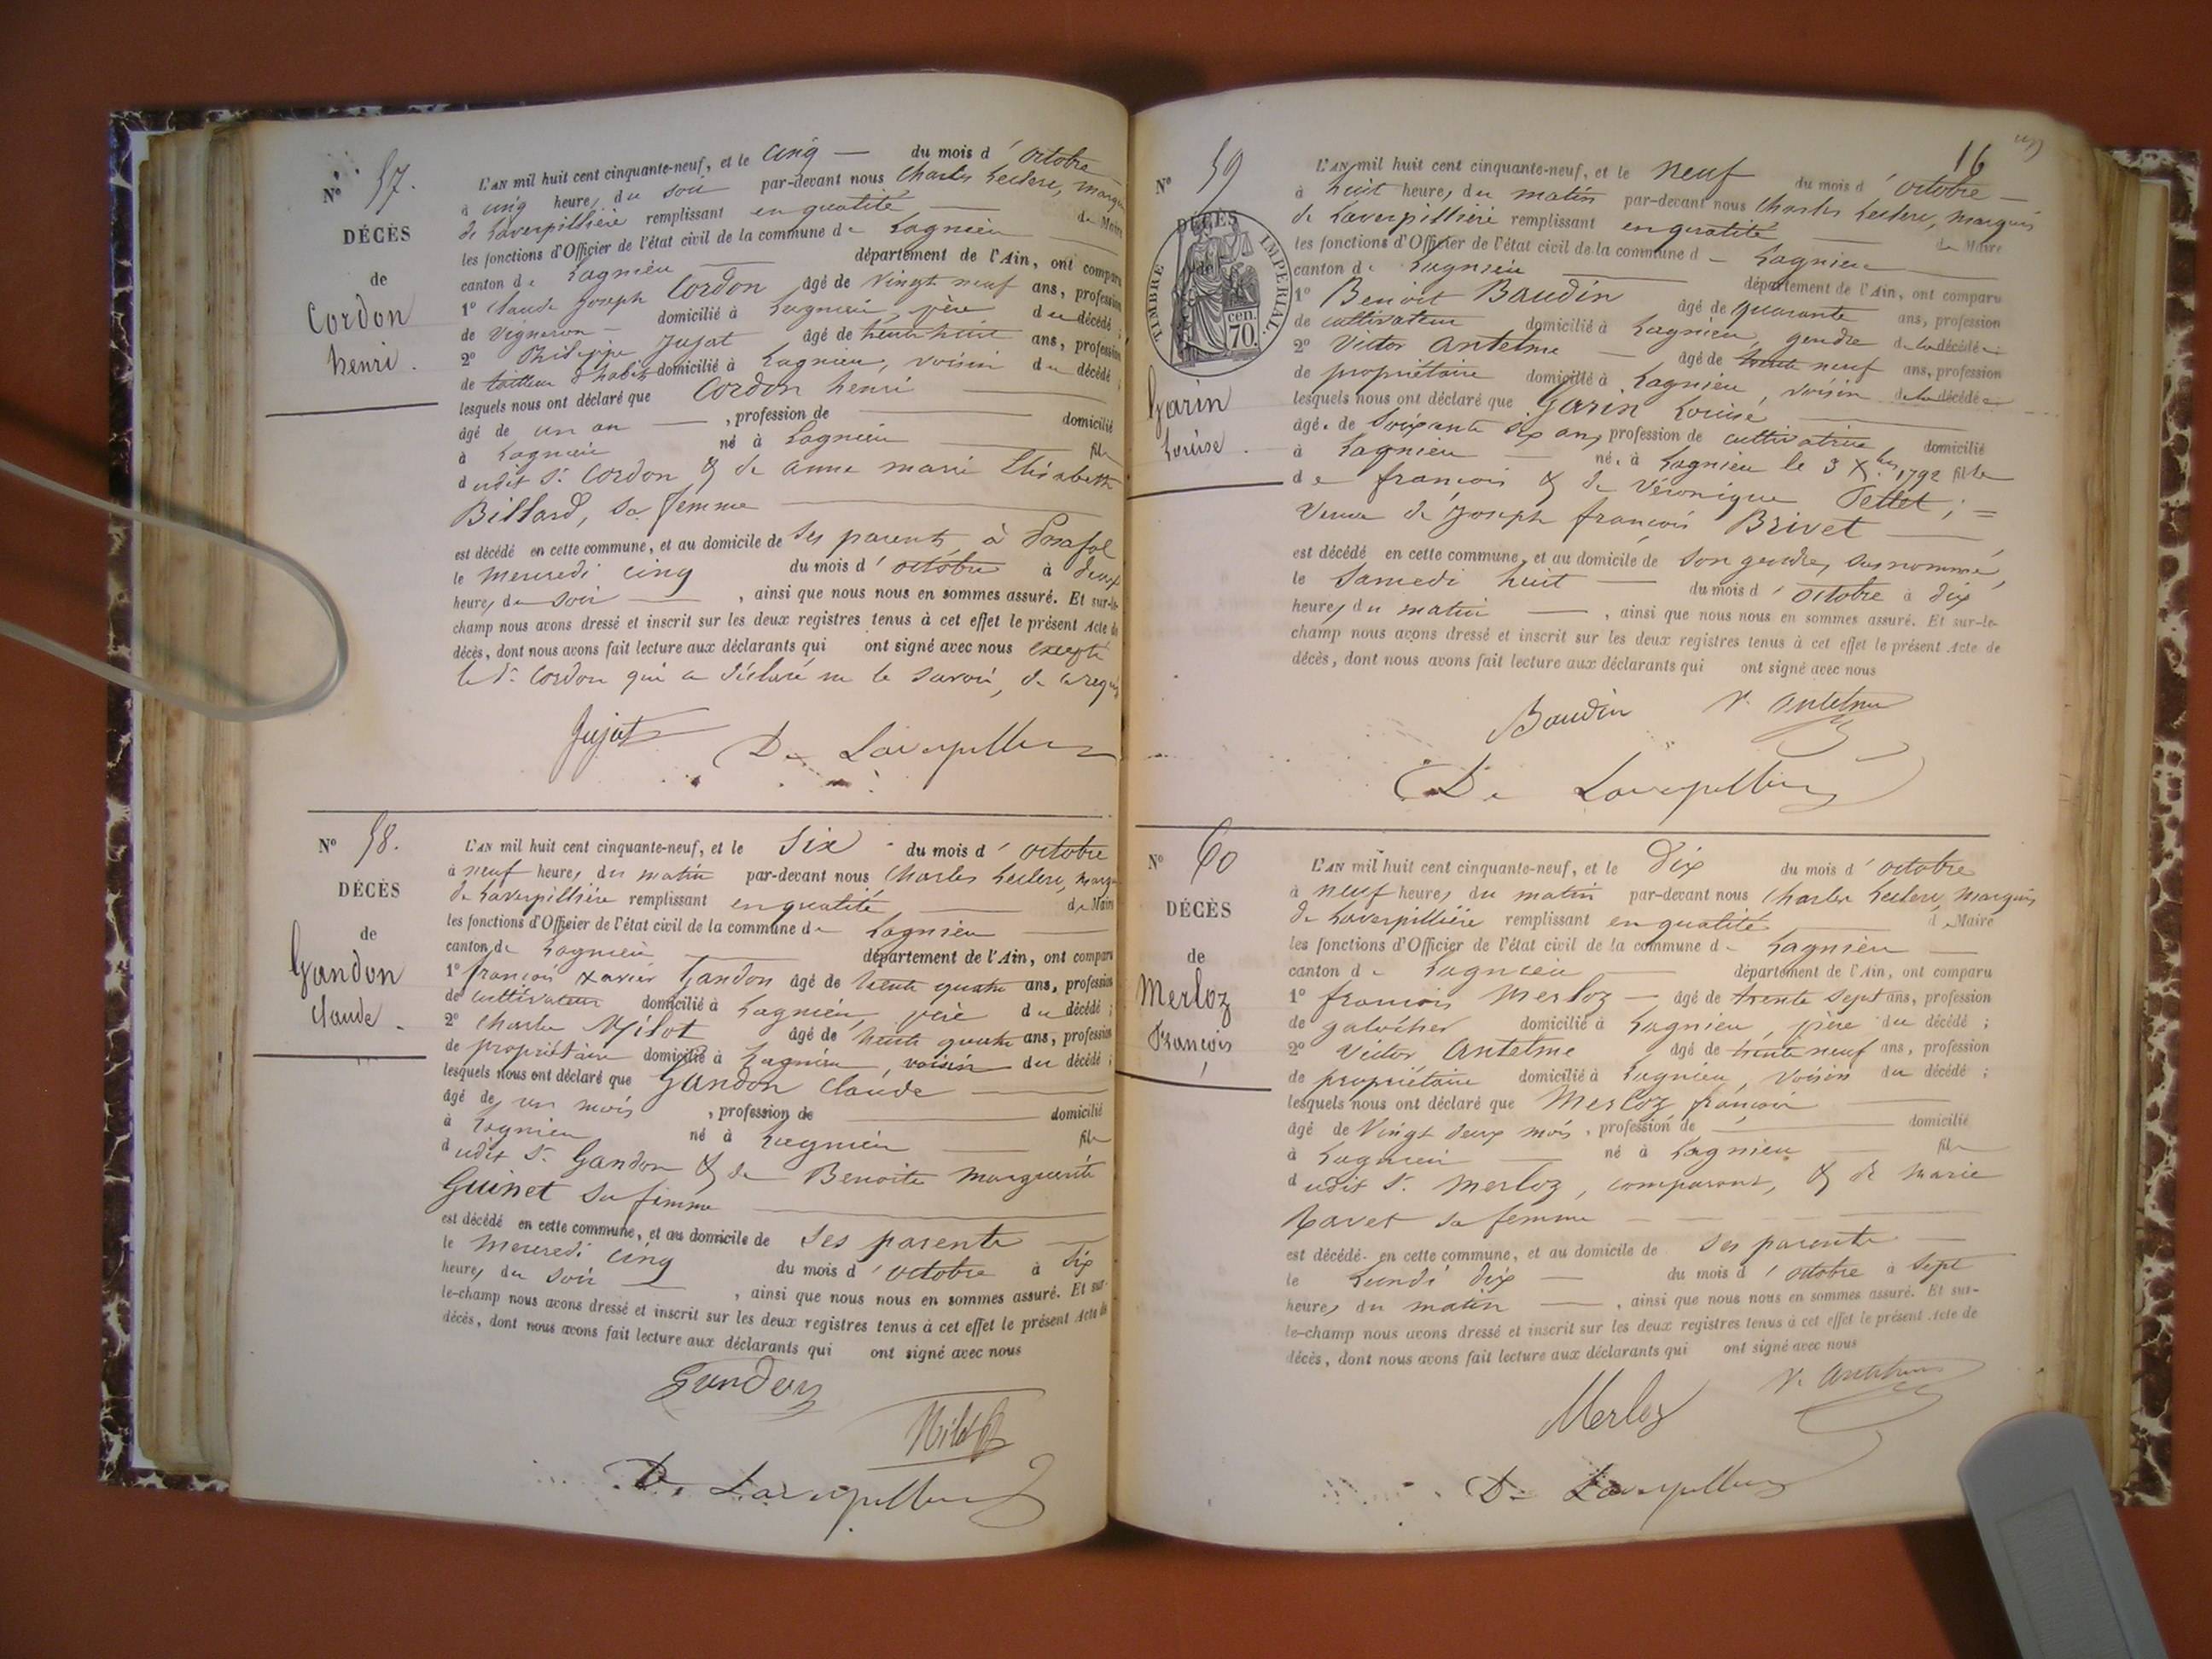 N° 57.
DÉCÈS
de
Cordon
henri.
L'AN mil huit cent cinquante-neuf, et le cinq — du mois d'octobre
à cinq heures du soir par-devant nous Charles Leclerc, marquis
de Laverpillière remplissant en qualité — de Maire
les fonctions d'Officier de l'état civil de la commune de Lagnieu —
canton de Lagnieu — département de l'Ain, ont comparu
1° Claude Joseph Cordon âgé de Vingt neuf ans, profession
de Vigneron — domicilié à Lagnieu, père du décédé ;
2° Philippe Jujat âgé de trente huit ans, profession
de tailleur d'habits domicilié à Lagnieu, voisin du décédé ;
lesquels nous ont déclaré que Cordon henri —
âgé de un an — , profession de — domicilié
à Lagnieu né à Lagnieu — fils
dudit Sr. Cordon & de anne marie Elisabeth
Billard, sa femme —
est décédé en cette commune, et au domicile de ses parents, à Posafol
le mercredi cinq du mois d'octobre à deux
heures du soir — , ainsi que nous nous en sommes assuré. Et sur-le-
champ nous avons dressé et inscrit sur les deux registres tenus à cet effet le présent Acte de
décès, dont nous avons fait lecture aux déclarants qui ont signé avec nous excepté
le Sr. Cordon qui a déclaré ne le savoir, de ce requis
Jujat De Laverpilliere
N° 58.
DÉCÈS
de
Gandon
Claude.
L'AN mil huit cent cinquante-neuf, et le Six du mois d'octobre
à neuf heures du matin par-devant nous Charles Leclerc, marquis
de Laverpillière remplissant en qualité — de Maire
les fonctions d'Officier de l'état civil de la commune de Lagnieu —
canton de Lagnieu — département de l'Ain, ont comparu
1° françois Xavier Gandon âgé de trente quatre ans, profession
de cultivateur domicilié à Lagnieu, père du décédé ;
2° Charles Milot âgé de trente quatre ans, profession
de propriétaire domicilié à Lagnieu, voisin du décédé ;
lesquels nous ont déclaré que Gandon Claude —
âgé de un mois , profession de — domicilié
à Lagnieu né à Lagnieu — fils
dudit Sr. Gandon & de Benoite marguerite
Guinet sa femme —
est décédé en cette commune, et au domicile de ses parents —
le mercredi cinq du mois d'octobre à Six
heures du soir — , ainsi que nous nous en sommes assuré. Et sur-
le-champ nous avons dressé et inscrit sur les deux registres tenus à cet effet le présent Acte de
décès, dont nous avons fait lecture aux déclarants qui ont signé avec nous
Gandon
Milot
De Laverpilliere
16
N° 59
DÉCÈS
de
TIMBRE IMPÉRIAL
70 cen.
Garin
Louise.
L'AN mil huit cent cinquante-neuf, et le neuf du mois d'octobre —
à huit heures du matin par-devant nous Charles Leclerc, marquis
de Laverpillière remplissant en qualité — de Maire
les fonctions d'Officier de l'état civil de la commune de Lagnieu —
canton de Lagnieu — département de l'Ain, ont comparu
1° Benoit Baudin âgé de quarante ans, profession
de cultivateur domicilié à Lagnieu, gendre de la décédée ;
2° Victor Antelme — âgé de trente neuf ans, profession
de propriétaire domicilié à Lagnieu, voisin de la décédée
lesquels nous ont déclaré que Garin Louise —
âgée de soixante six ans, profession de cultivatrice domicilié
à Lagnieu — née à Lagnieu le 3 Xbre 1792 fille
de françois & de Véronique Pettet ; =
Veuve de Joseph françois Brivet —
est décédé en cette commune, et au domicile de son gendre, susnommé,
le Samedi huit — du mois d'octobre à dix
heures du matin — , ainsi que nous nous en sommes assuré. Et sur-le-
champ nous avons dressé et inscrit sur les deux registres tenus à cet effet le présent Acte de
décès, dont nous avons fait lecture aux déclarants qui ont signé avec nous
Baudin V. Antelme
De Laverpilliere
N° 60
DÉCÈS
de
Merloz
François
L'AN mil huit cent cinquante-neuf, et le Dix du mois d'octobre
à neuf heures du matin par-devant nous Charles Leclerc, marquis
de Laverpillière remplissant en qualité — de Maire
les fonctions d'Officier de l'état civil de la commune de Lagnieu —
canton de Lagnieu — département de l'Ain, ont comparu
1° françois Merloz — âgé de trente sept ans, profession
de galocher domicilié à Lagnieu, père du décédé ;
2° Victor Antelme âgé de trente neuf ans, profession
de propriétaire domicilié à Lagnieu, voisin du décédé ;
lesquels nous ont déclaré que Merloz françois —
âgé de Vingt deux mois, profession de — domicilié
à Lagnieu — né à Lagnieu — fils
dudit Sr. Merloz, comparant, & de marie
Ravet sa femme —
est décédé en cette commune, et au domicile de ses parents —
le Lundi dix — du mois d'octobre à sept
heures du matin — , ainsi que nous nous en sommes assuré. Et sur-
le-champ nous avons dressé et inscrit sur les deux registres tenus à cet effet le présent Acte de
décès, dont nous avons fait lecture aux déclarants qui ont signé avec nous
Merloz V. Antelme
De Laverpilliere